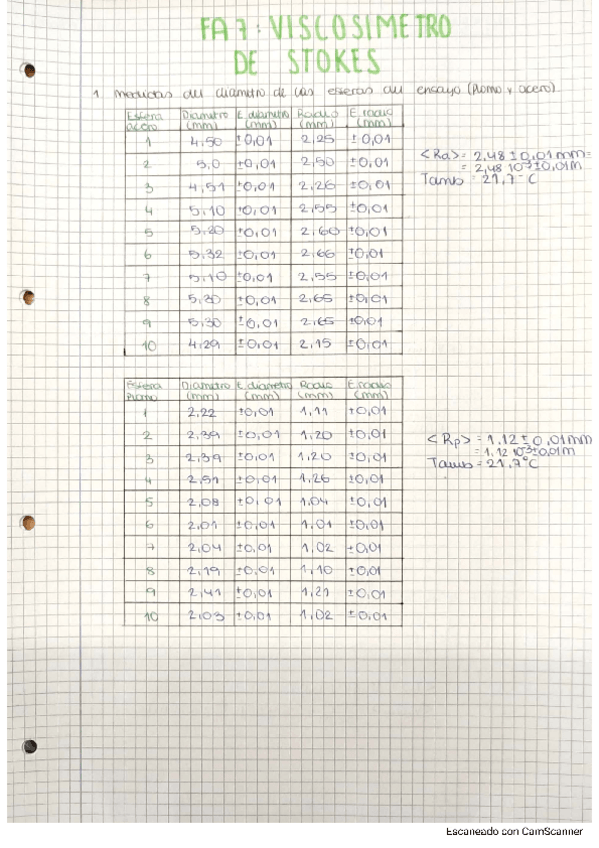 FA 7: VISCOSIMETRO
DE STOKES
1 medidas del diametro de las esferas del ensayo (Plomo y acero).
Esfera acero Diametro (mm) E. diametro (mm) Radio (mm) E. radio (mm)
1 4,50 ±0,01 2,25 ±0,01
2 5,0 ±0,01 2,50 ±0,01
3 4,51 ±0,01 2,26 ±0,01
4 5,10 ±0,01 2,55 ±0,01
5 5,20 ±0,01 2,60 ±0,01
6 5,32 ±0,01 2,66 ±0,01
7 5,10 ±0,01 2,55 ±0,01
8 5,30 ±0,01 2,65 ±0,01
9 5,30 ±0,01 2,65 ±0,01
10 4,29 ±0,01 2,15 ±0,01
<Ra> = 2,48 ± 0,01 mm =
= 2,48 10⁻³ ± 0,01 m
Tamb = 21,7 °C
Esfera Plomo Diametro (mm) E. diametro (mm) Radio (mm) E. radio (mm)
1 2,22 ±0,01 1,11 ±0,01
2 2,39 ±0,01 1,20 ±0,01
3 2,39 ±0,01 1,20 ±0,01
4 2,51 ±0,01 1,26 ±0,01
5 2,08 ±0,01 1,04 ±0,01
6 2,01 ±0,01 1,01 ±0,01
7 2,04 ±0,01 1,02 ±0,01
8 2,19 ±0,01 1,10 ±0,01
9 2,41 ±0,01 1,21 ±0,01
10 2,03 ±0,01 1,02 ±0,01
<Rp> = 1,12 ± 0,01 mm
= 1,12 10⁻³ ± 0,01 m
Tamb = 21,7 °C
Escaneado con CamScanner